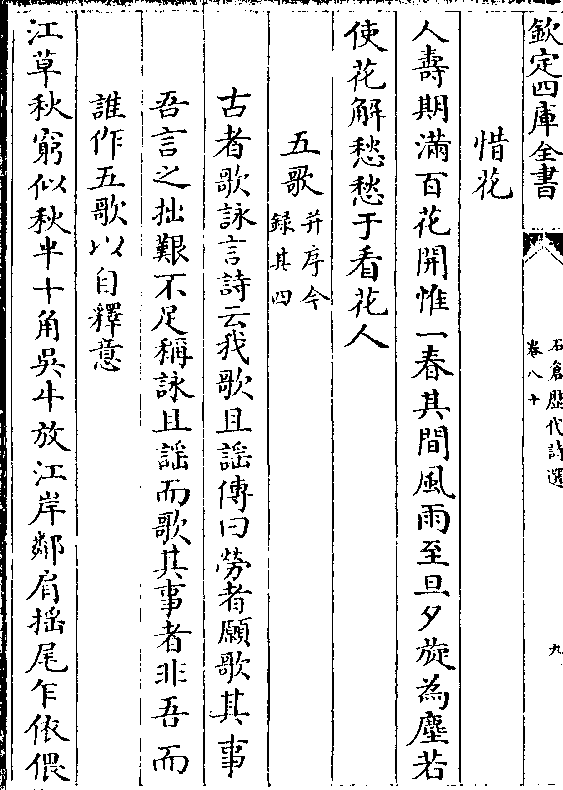 欽定四庫全書
石倉歷代詩選
卷八十
九
惜花
人壽期滿百花開惟一春其間風雨至旦夕旋為塵若
使花解愁愁于看花人
五歌并序今録其四
古者歌詠言詩云我歌且謡傳曰勞者願歌其事
吾言之拙艱不足稱詠且謡而歌其事者非吾而
誰作五歌以自釋意
江草秋窮似秋半十角吳牛放江岸鄰肩摇尾乍依偎